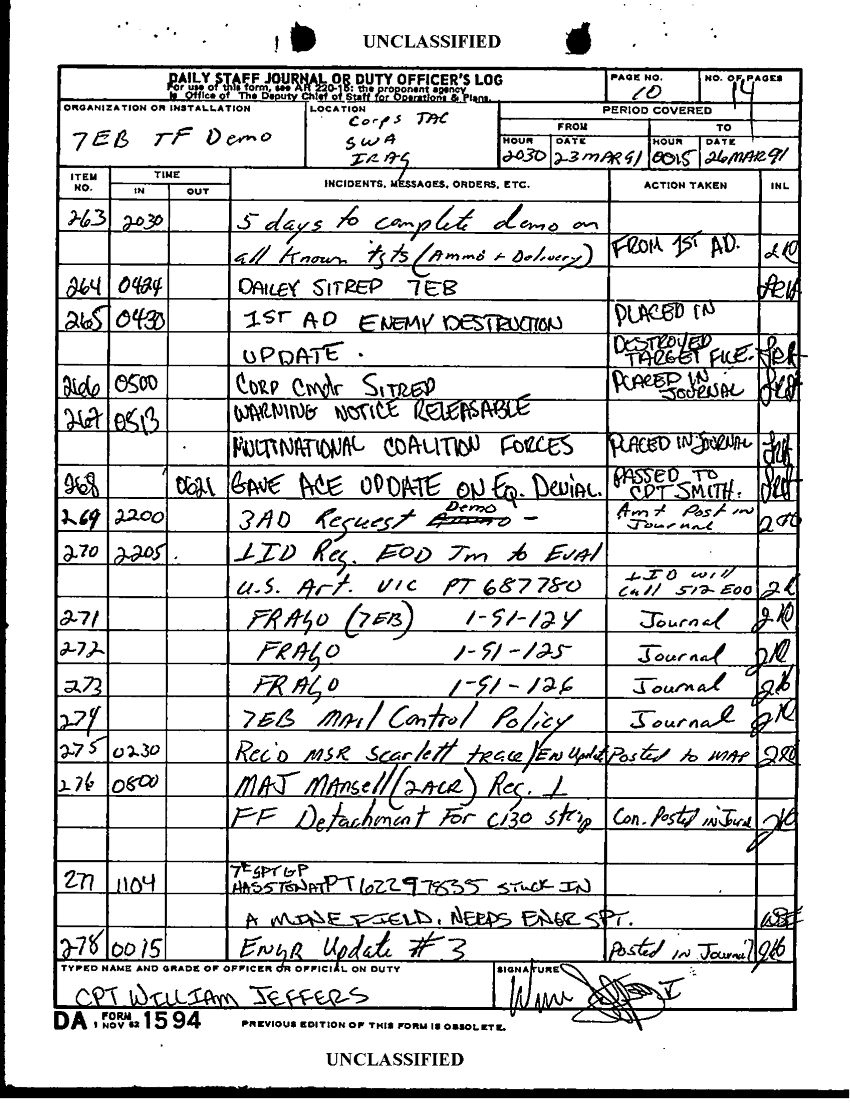 UNCLASSIFIED
DAILY STAFF JOURNAL OR DUTY OFFICER'S LOG
For use of this form, see AR 220-15; the proponent agency
is Office of The Deputy Chief of Staff for Operations & Plans.
PAGE NO.
10
NO. OF PAGES
14
ORGANIZATION OR INSTALLATION
7EB TF Demo
LOCATION
Corps TAC
SWA
IRAQ
PERIOD COVERED
FROM
TO
HOUR
2030
DATE
23 MAR 91
HOUR
0015
DATE
26 MAR 91
ITEM NO.
TIME
IN
OUT
INCIDENTS, MESSAGES, ORDERS, ETC.
ACTION TAKEN
INL
263 2030 5 days to complete demo on
all Known tgts (Ammo + Delivery) FROM 1ST AD.
264 0424 DAILEY SITREP 7EB
265 0430 1ST AD ENEMY DESTRUCTION PLACED IN
UPDATE. DESTROYED TARGET FILE.
266 0500 CORP Cmdr SITREP PLACED IN JOURNAL
267 0513 WARNING NOTICE RELEASABLE
MULTINATIONAL COALITION FORCES PLACED IN JOURNAL
268 0621 GAVE ACE UPDATE ON EQ. DENIAL. PASSED TO CPT SMITH.
269 2200 3AD Request Demo - Amt Post in Journal
270 2205 1ID Req. EOD Tm to EVAl
U.S. Art. VIC PT 687780 1ID will call 512 EOD
271 FRAGO (7EB) 1-91-124 Journal
272 FRAGO 1-91-125 Journal
273 FRAGO 1-91-126 Journal
274 7EB MAil Control Policy Journal
275 0230 Rec'd MSR Scarlett trace/EN Update Posted to MAP
276 0800 MAJ MAnsell (2ACR) Req. 1
FF Detachment For C130 strip Con. Posted in Journal
277 1104 7th SPT GP
HAS STENAT PT 62297835 STUCK IN
A MINEFIELD. NEEDS ENGR SPT.
278 0015 ENGR Update # 3 Posted in Journal
TYPED NAME AND GRADE OF OFFICER OR OFFICIAL ON DUTY
CPT WILLIAM JEFFERS
SIGNATURE
DA FORM 1 NOV 62 1594 PREVIOUS EDITION OF THIS FORM IS OBSOLETE.
UNCLASSIFIED